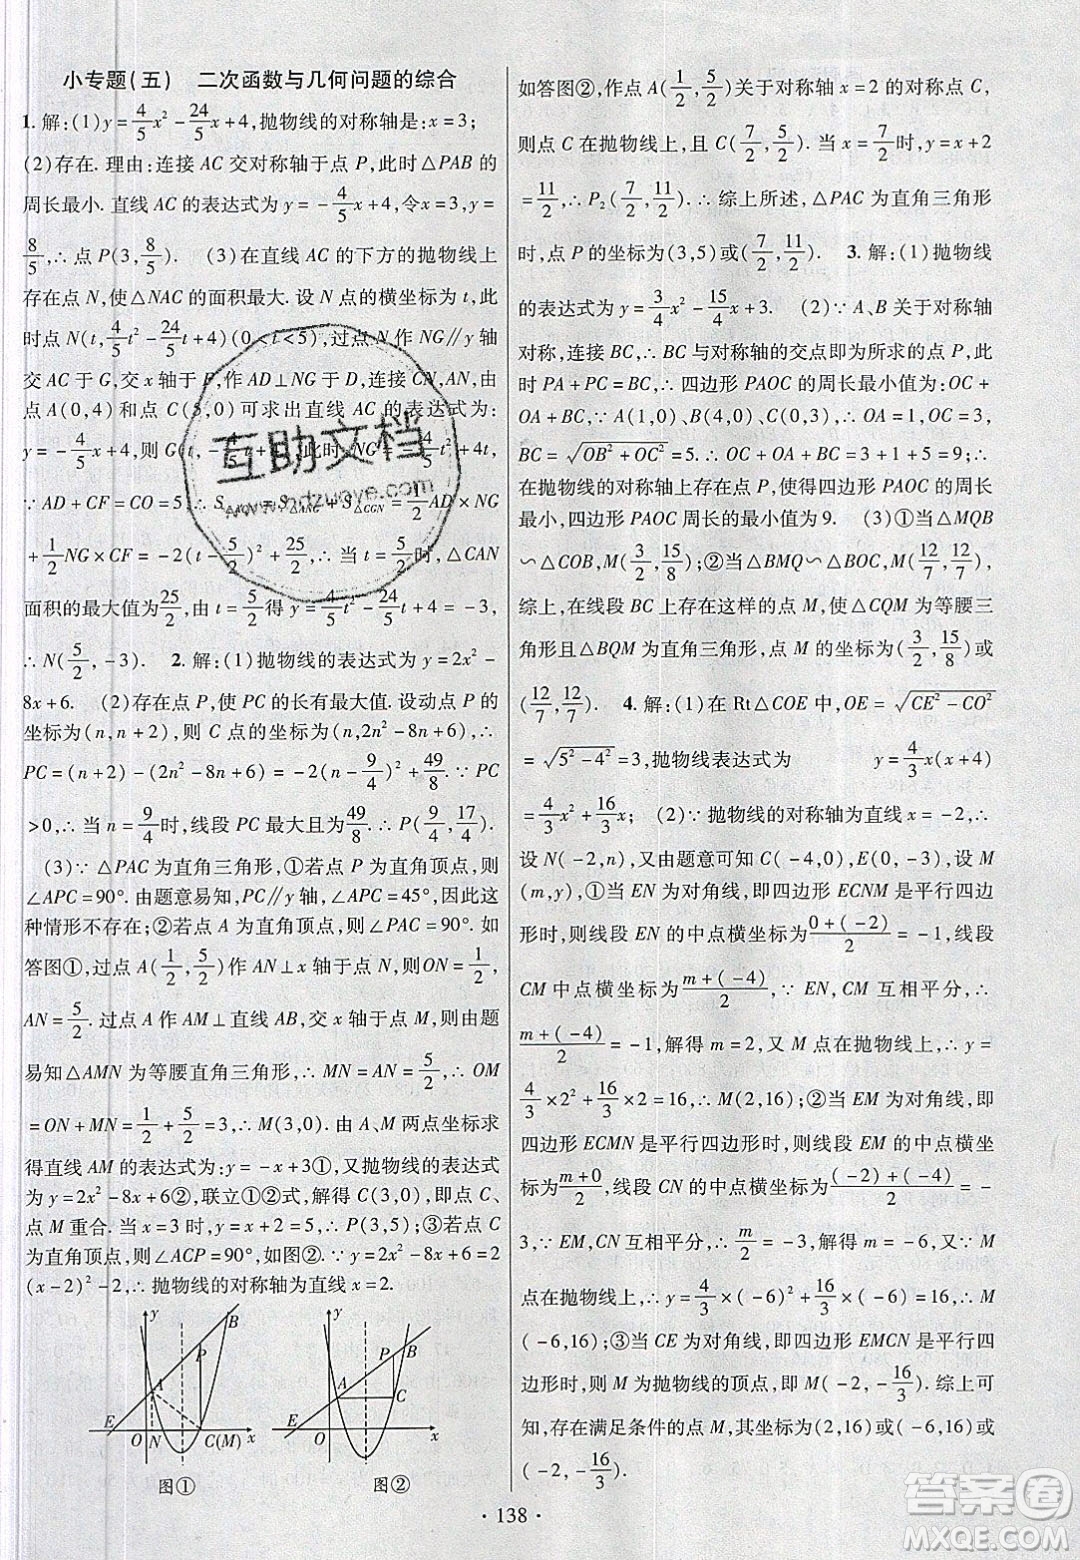 小专题(五) 二次函数与几何问题的综合
1. 解:(1)y=4/5x²-24/5x+4,抛物线的对称轴是:x=3;
(2)存在. 理由:连接 AC 交对称轴于点 P,此时△PAB 的
周长最小. 直线 AC 的表达式为 y=-4/5x+4,令 x=3,y=
8/5,∴点 P(3,8/5). (3)在直线 AC 的下方的抛物线上
存在点 N,使△NAC 的面积最大. 设 N 点的横坐标为 t,此
时点 N(t,4/5t²-24/5t+4)(0<t<5),过点 N 作 NG∥y 轴
交 AC 于 G,交 x 轴于 F,作 AD⊥NG 于 D,连接 CN,AN,由
点 A(0,4)和点 C(5,0)可求出直线 AC 的表达式为:
y=-4/5x+4,则 G(t,-4/5t+4),此时,NG=-4/5t²+4t.
∵AD+CF=CO=5,∴S△CAN=S△ANG+S△CGN=1/2AD×NG
+1/2NG×CF=-2(t-5/2)²+25/2,∴当 t=5/2时,△CAN
面积的最大值为25/2,由 t=5/2得 y=4/5t²-24/5t+4=-3,
∴N(5/2,-3). 2. 解:(1)抛物线的表达式为 y=2x²-
8x+6. (2)存在点 P,使 PC 的长有最大值. 设动点 P 的
坐标为(n,n+2),则 C 点的坐标为(n,2n²-8n+6),∴
PC=(n+2)-(2n²-8n+6)=-2(n-9/4)²+49/8. ∵PC
>0,∴当 n=9/4时,线段 PC 最大且为49/8. ∴P(9/4,17/4).
(3)∵△PAC 为直角三角形,①若点 P 为直角顶点,则
∠APC=90°. 由题意易知,PC∥y 轴,∠APC=45°,因此这
种情形不存在;②若点 A 为直角顶点,则∠PAC=90°. 如
答图①,过点 A(1/2,5/2)作 AN⊥x 轴于点 N,则 ON=1/2,
AN=5/2. 过点 A 作 AM⊥直线 AB,交 x 轴于点 M,则由题
易知△AMN 为等腰直角三角形,∴MN=AN=5/2,∴OM
=ON+MN=1/2+5/2=3,∴M(3,0). 由 A、M 两点坐标求
得直线 AM 的表达式为:y=-x+3①,又抛物线的表达式
为 y=2x²-8x+6②,联立①②式,解得 C(3,0),即点 C、
点 M 重合. 当 x=3 时,y=x+2=5,∴P(3,5);③若点 C
为直角顶点,则∠ACP=90°,如图②. ∵y=2x²-8x+6=2
(x-2)²-2,∴抛物线的对称轴为直线 x=2.
y B P A E O N C(M) x
图①
y P B A C E O x
图②
如答图②,作点 A(1/2,5/2)关于对称轴 x=2 的对称点 C,
则点 C 在抛物线上,且 C(7/2,5/2). 当 x=7/2时,y=x+2
=11/2,∴P₂(7/2,11/2). ∴综上所述,△PAC 为直角三角形
时,点 P 的坐标为(3,5)或(7/2,11/2). 3. 解:(1)抛物线
的表达式为 y=3/4x²-15/4x+3. (2)∵A、B 关于对称轴
对称,连接 BC,∴BC 与对称轴的交点即为所求的点 P,此
时 PA+PC=BC,∴四边形 PAOC 的周长最小值为:OC+
OA+BC,∵A(1,0)、B(4,0)、C(0,3),∴OA=1,OC=3,
BC=√(OB²+OC²)=5. ∴OC+OA+BC=3+1+5=9;∴
在抛物线的对称轴上存在点 P,使得四边形 PAOC 的周长
最小,四边形 PAOC 周长的最小值为 9. (3)①当△MQB
∽△COB,M(3/2,15/8);②当△BMQ∽△BOC,M(12/7,12/7),
综上,在线段 BC 上存在这样的点 M,使△CQM 为等腰三
角形且△BQM 为直角三角形,点 M 的坐标为(3/2,15/8)或
(12/7,12/7). 4. 解:(1)在 Rt△COE 中,OE=√(CE²-CO²)
=√(5²-4²)=3,抛物线表达式为 y=4/3x(x+4)
=4/3x²+16/3x; (2)∵抛物线的对称轴为直线 x=-2,∴
设 N(-2,n),又由题意可知 C(-4,0),E(0,-3),设 M
(m,y),①当 EN 为对角线,即四边形 ECNM 是平行四边
形时,则线段 EN 的中点横坐标为0+(-2)/2=-1,线段
CM 中点横坐标为m+(-4)/2,∵EN,CM 互相平分,∴
m+(-4)/2=-1,解得 m=2,又 M 点在抛物线上,∴y=
4/3×2²+16/3×2=16,∴M(2,16);②当 EM 为对角线,即
四边形 ECMN 是平行四边形时,则线段 EM 的中点横坐
标为m+0/2,线段 CN 的中点横坐标为(-2)+(-4)/2=-
3,∵EM,CN 互相平分,∴m/2=-3,解得 m=-6,又∵M
点在抛物线上,∴y=4/3×(-6)²+16/3×(-6)=16,∴M
(-6,16);③当 CE 为对角线,即四边形 EMCN 是平行四
边形时,则 M 为抛物线的顶点,即 M(-2,-16/3). 综上可
知,存在满足条件的点 M,其坐标为(2,16)或(-6,16)或
(-2,-16/3).
· 138 ·
互助文档
www.hdzuoye.com
答案圈
MXQE.COM